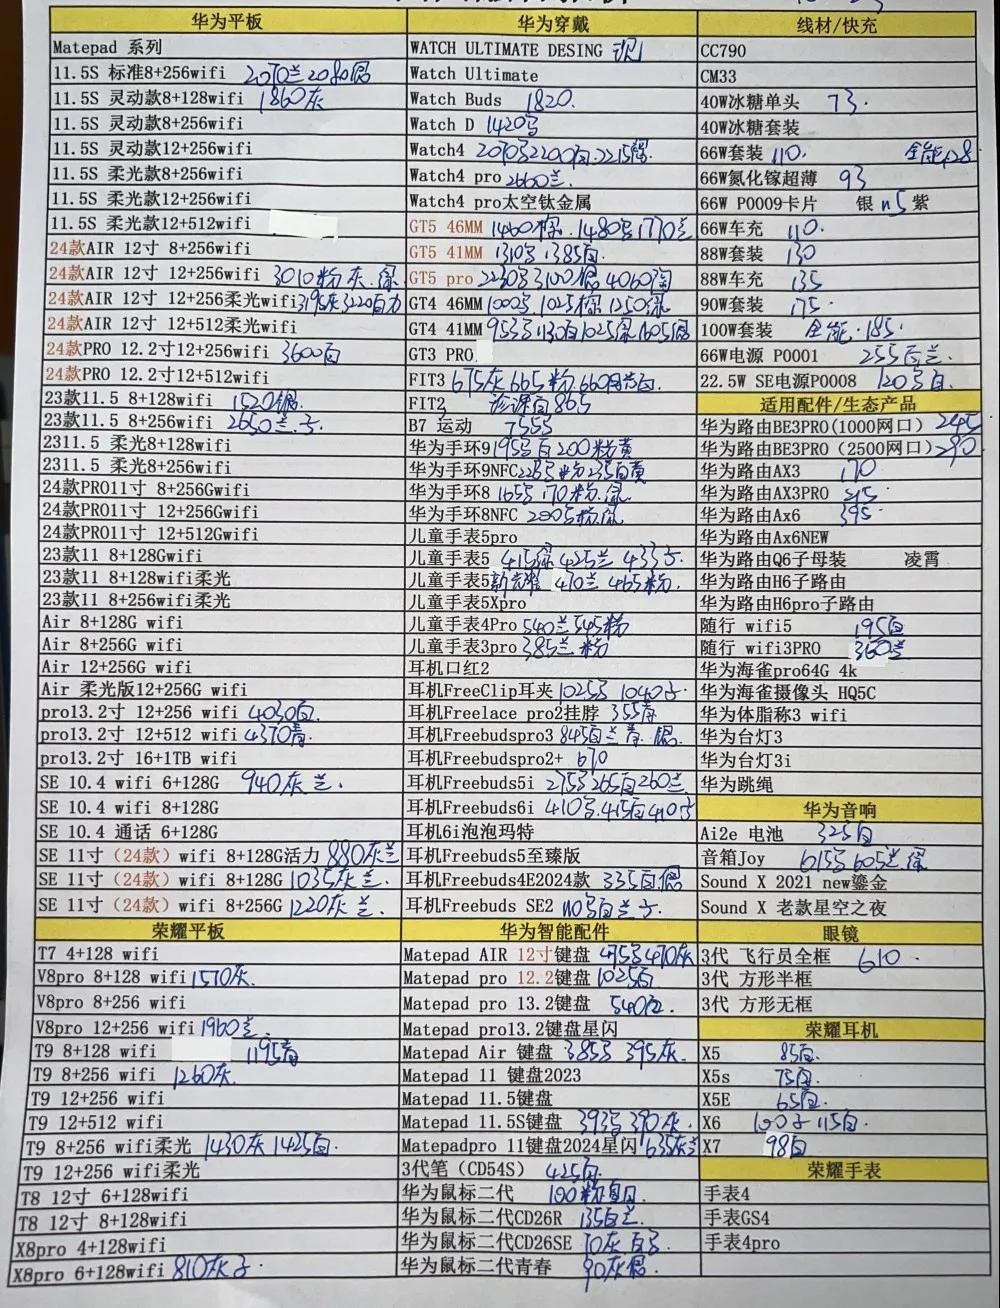 华为平板
Matepad 系列
11.5S 标准8+256wifi 2070兰2080
11.5S 灵动款8+128wifi 1860灰
11.5S 灵动款8+256wifi
11.5S 灵动款12+256wifi
11.5S 柔光款8+256wifi
11.5S 柔光款12+256wifi
11.5S 柔光款12+512wifi
24款AIR 12寸 8+256wifi
24款AIR 12寸 12+256wifi 3010粉 灰.绿
24款AIR 12寸 12+256柔光wifi
24款AIR 12寸 12+512柔光wifi
24款PRO 12.2寸12+256wifi 3600白
24款PRO 12.2寸12+512wifi
23款11.5 8+128wifi 1520银
23款11.5 8+256wifi 2650兰
2311.5 柔光8+128wifi
2311.5 柔光8+256wifi
24款PRO11寸 8+256Gwifi
24款PRO11寸 12+256Gwifi
24款PRO11寸 12+512Gwifi
23款11 8+128Gwifi
23款11 8+128wifi柔光
23款11 8+256wifi柔光
Air 8+128G wifi
Air 8+256G wifi
Air 12+256G wifi
Air 柔光版12+256G wifi
pro13.2寸 12+256 wifi 4030白.
pro13.2寸 12+512 wifi 4370青
pro13.2寸 16+1TB wifi
SE 10.4 wifi 6+128G 940灰 兰.
SE 10.4 wifi 8+128G
SE 10.4 通话 6+128G
SE 11寸（24款）wifi 8+128G活力 880灰兰
SE 11寸（24款）wifi 8+128G 1035灰 兰.
SE 11寸（24款）wifi 8+256G 1220灰 兰.
荣耀平板
T7 4+128 wifi
V8pro 8+128 wifi 1570灰.
V8pro 8+256 wifi
V8pro 12+256 wifi 1960兰.
T9 8+128 wifi 1195青
T9 8+256 wifi 1260灰.
T9 12+256 wifi
T9 12+512 wifi
T9 8+256 wifi柔光 1430灰 1425白.
T9 12+256 wifi柔光
T8 12寸 6+128wifi
T8 12寸 8+128wifi
X8pro 4+128wifi
X8pro 6+128wifi 810灰
华为穿戴
WATCH ULTIMATE DESING 识
Watch Ultimate
Watch Buds 1820.
Watch D 1420
Watch4 2070 2200白.2215
Watch4 pro 2660兰.
Watch4 pro太空钛金属
GT5 46MM 1460棕.1480 1770兰
GT5 41MM 1310 1385白.
GT5 pro 2230 3100 4060
GT4 46MM 1000 1025棕 1250绿
GT4 41MM 955 1130白1025绿
GT3 PRO
FIT3 675灰 665粉.660
FIT2 865
B7 运动
华为手环9 195 白 200粉黄
华为手环9NFC 粉235白黄
华为手环8 165 170粉.绿
华为手环8NFC 200 粉.绿
儿童手表5pro
儿童手表5 415绿 425兰 433
儿童手表5新 470兰 465粉.
儿童手表5Xpro
儿童手表4Pro 540兰545粉
儿童手表3pro 385兰 粉
耳机口红2
耳机FreeClip耳夹 1025 1040
耳机Freelace pro2挂脖 355青
耳机Freebudspro3 845白兰青.银
耳机Freebudspro2+ 670
耳机Freebuds5i 275 265白260兰
耳机Freebuds6i 410 .415白410
耳机6i泡泡玛特
耳机Freebuds5至臻版
耳机Freebuds4E2024款 335白
耳机Freebuds SE2 110 白兰
华为智能配件
Matepad AIR 12寸键盘 475 470灰
Matepad pro 12.2键盘 1025白
Matepad pro 13.2键盘 540白.
Matepad pro13.2键盘星闪
Matepad Air 键盘 385 395灰.
Matepad 11 键盘2023
Matepad 11.5键盘
Matepad 11.5S键盘 393 390灰.
Matepadpro 11键盘2024星闪 635灰兰
3代笔（CD54S） 425白.
华为鼠标二代 100粉
华为鼠标二代CD26R 135白兰.
华为鼠标二代CD26SE 70灰 白
华为鼠标二代青春 90灰银.
线材/快充
CC790
CM33
40W冰糖单头 73.
40W冰糖套装
66W套装 110. 全能128
66W氮化镓超薄 93
66W P0009卡片 银 115 紫
66W车充 110.
88W套装 130
88W车充 135
90W套装 175.
100W套装 全能.185.
66W电源 P0001 255白兰.
22.5W SE电源P0008 120 白.
适用配件/生态产品
华为路由BE3PRO(1000网口) 245
华为路由BE3PRO（2500网口）290
华为路由AX3 170
华为路由AX3PRO 215
华为路由Ax6 395
华为路由Ax6NEW
华为路由Q6子母装 凌霄
华为路由H6子路由
华为路由H6pro子路由
随行 wifi5 195白
随行 wifi3PRO 360兰
华为海雀pro64G 4k
华为海雀摄像头 HQ5C
华为体脂称3 wifi
华为台灯3
华为台灯3i
华为跳绳
华为音响
Ai2e 电池 325白
音箱Joy 615 605兰.绿
Sound X 2021 new鎏金
Sound X 老款星空之夜
眼镜
3代 飞行员全框 610.
3代 方形半框
3代 方形无框
荣耀耳机
X5 85白.
X5s 75白.
X5E 65白.
X6 100 115白.
X7 98白
荣耀手表
手表4
手表GS4
手表4pro